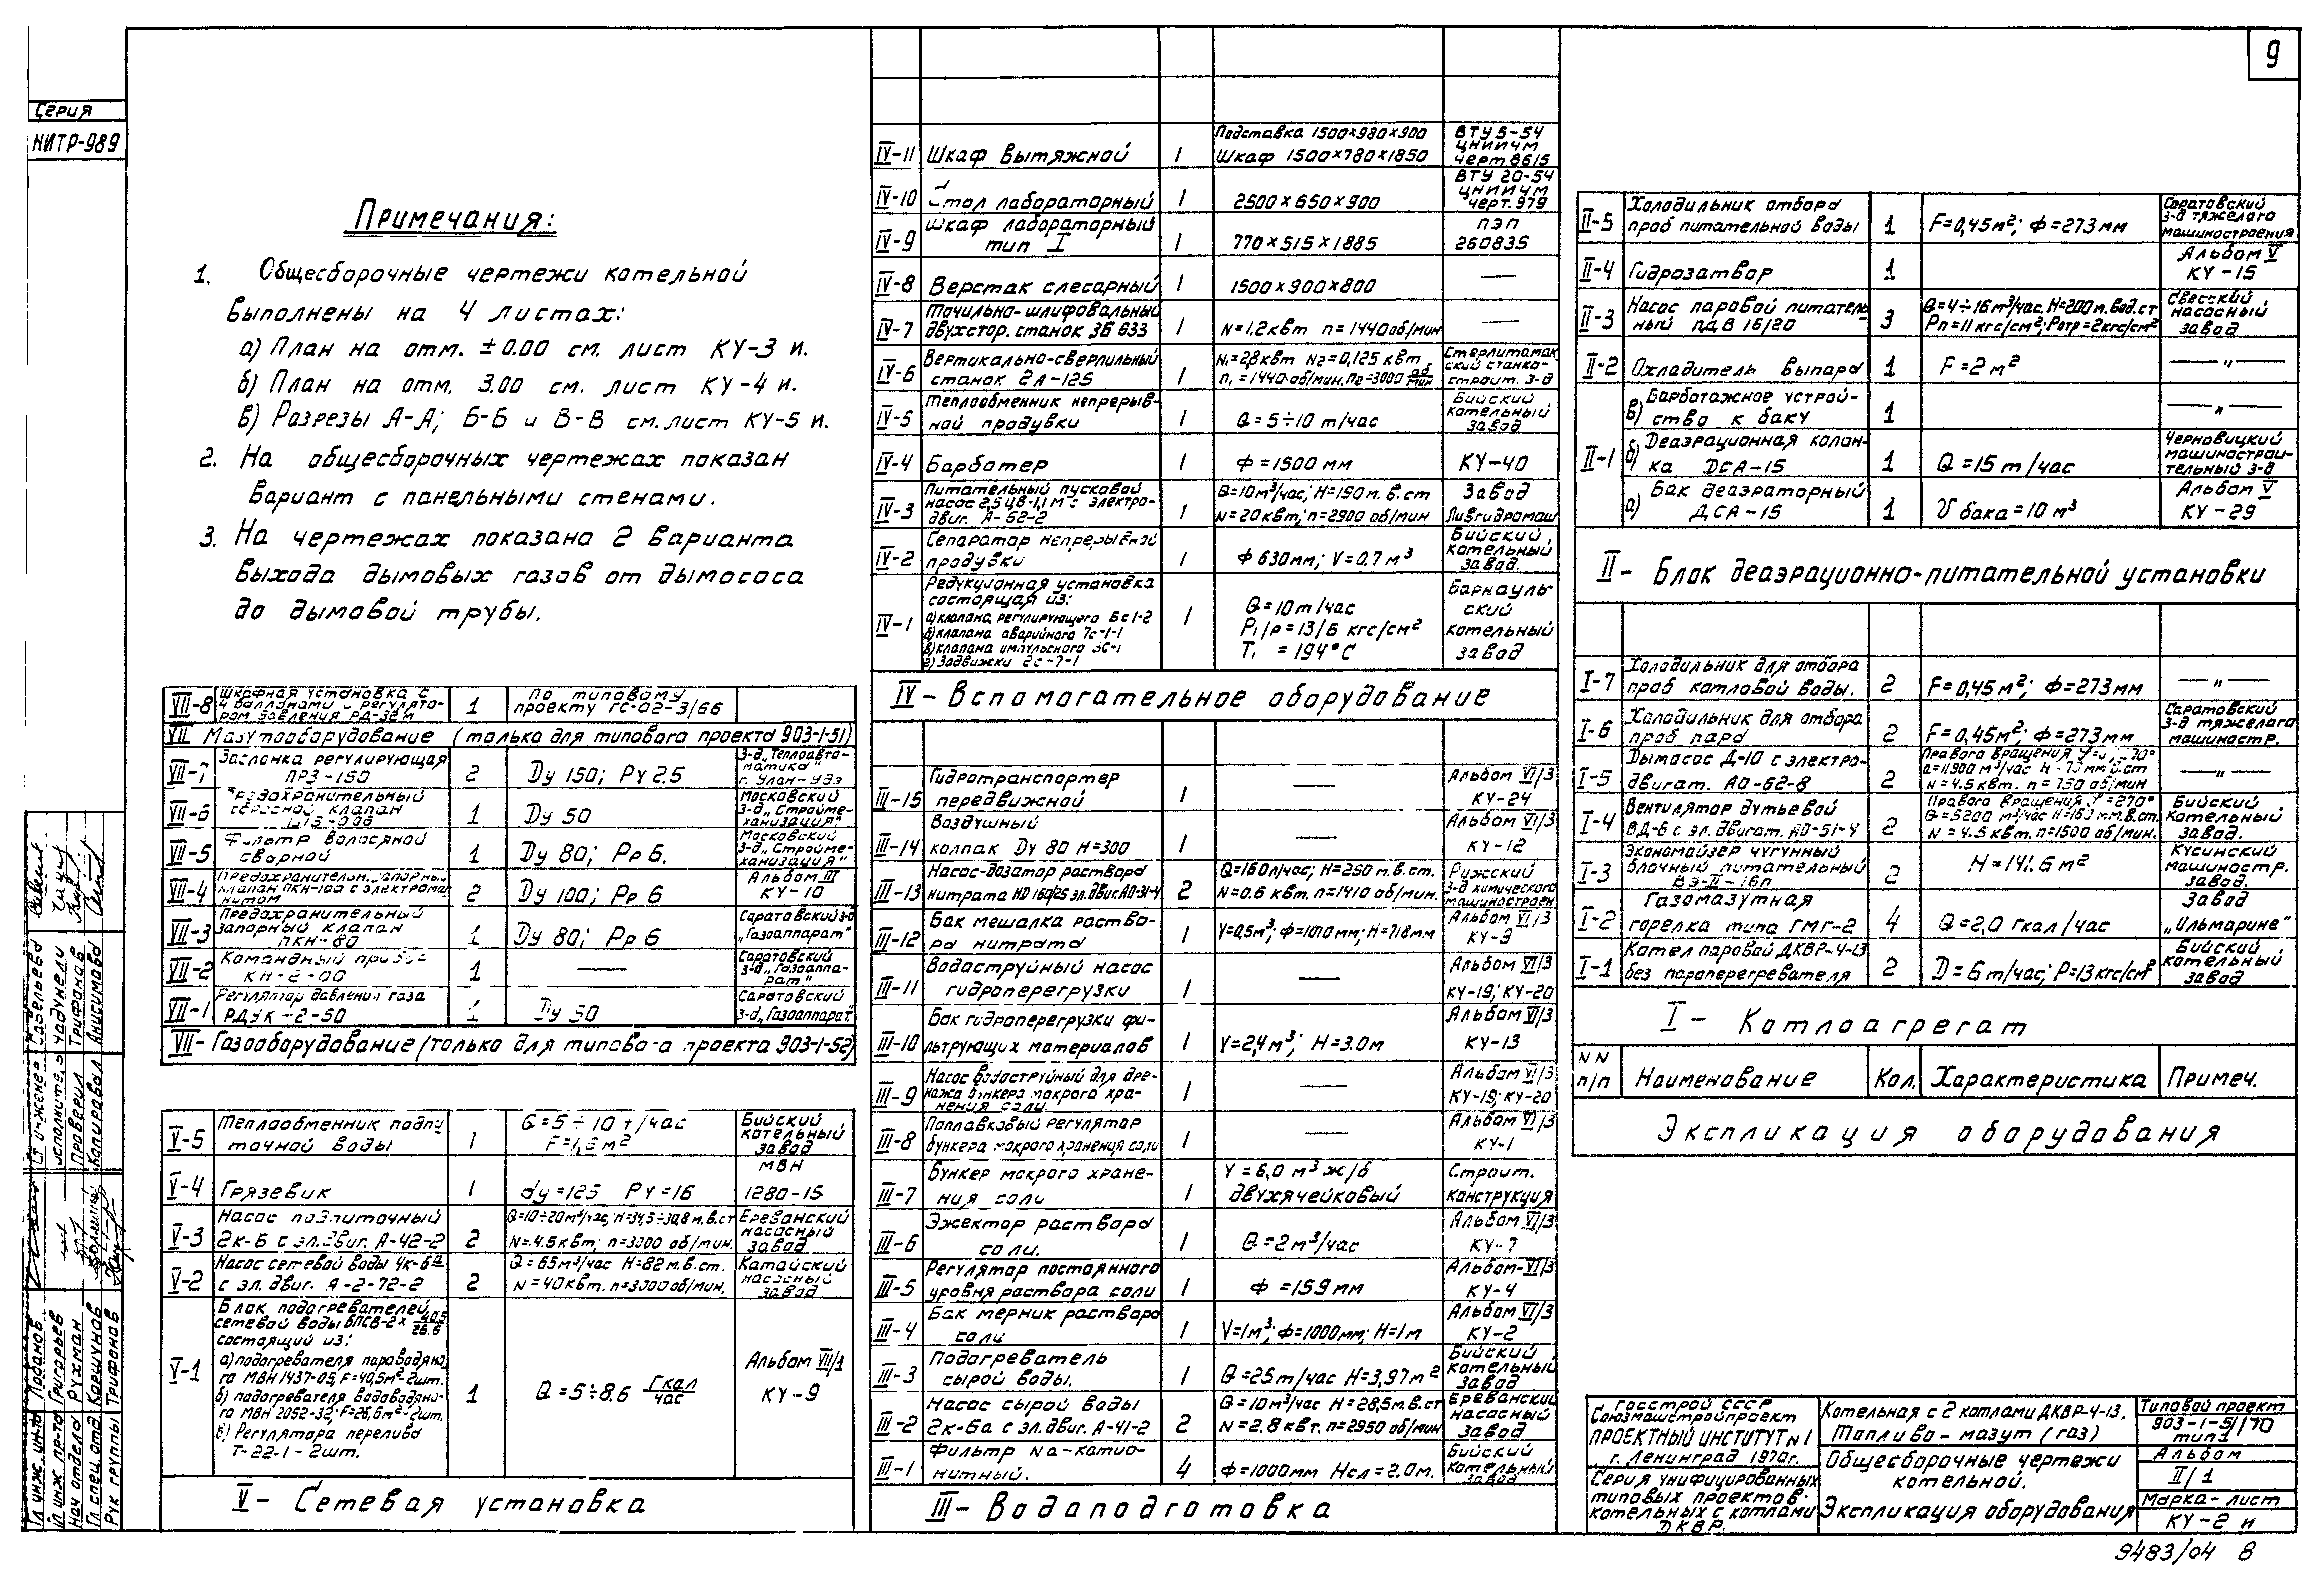 9
Серия
НИТР-989
Примечания:
1. Общесборочные чертежи котельной
выполнены на 4 листах:
а) План на отм. ±0.00 см. лист КУ-3 и.
б) План на отм. 3.00 см. лист КУ-4 и.
в) Разрезы А-А; Б-Б и В-В см. лист КУ-5 и.
2. На общесборочных чертежах показан
вариант с панельными стенами.
3. На чертежах показано 2 варианта
выхода дымовых газов от дымососа
до дымовой трубы.
VII-8 Шкафная установка с 4 баллонами и регулято-
ром давления РД-32м 1 По типовому проекту ГС-02-3/66
VII Мазутооборудование (только для типового проекта 903-1-51)
VII-7 Заслонка регулирующая ПРЗ-150 2 Ду 150; Ру 2.5 З-д „Теплоавто-
матика" г. Улан-Удэ
VII-6 Предохранительный сбросной клапан 1 Ду 50 Московский з-д „Стройме-
ханизация"
VII-5 Фильтр волосяной сварной 1 Ду 80; Рр 6. Московский з-д „Стройме-
ханизация"
VII-4 Предохранительн. запорный клапан ПКН-100 с электромаг-
нитом 2 Ду 100; Рр 6 Альбом III КУ-10
VII-3 Предохранительный запорный клапан ПКН-80 1 Ду 80; Рр 6 Саратовский з-д „Газоаппарат"
VII-2 Командный прибор КН-2-00 1 — Саратовский з-д „Газоаппа-
рат"
VII-1 Регулятор давления газа РДУК-2-50 1 Ду 50 Саратовский з-д „Газоаппарат"
VII- Газооборудование (только для типового проекта 903-1-52)
V-5 Теплообменник подпи-
точной воды 1 G=5÷10 т/час Бийский котельный завод
V-4 Грязевик 1 dу=125 Ру=16 МВН 1280-15
V-3 Насос подпиточный 2К-6 с эл. двиг. А-42-2 2 Q=10÷20м³/час, Н=34,5÷30,8 м.в.ст N=4.5квт; n=3000 об/мин. Ереванский насосный завод
V-2 Насос сетевой воды 4К-6а с эл. двиг. А-2-72-2 2 Q=65м³/час Н=82м.в.ст. N=40квт. n=3000об/мин. Катайский насосный завод
V-1 Блок подогревателей
сетевой воды БПСВ-2× 40.5/26.6
состоящий из:
а) подогревателя пароводяно-
го МВН 1437-05, F=40,5м²-2шт.
б) подогревателя водоводяно-
го МВН 2052-32; F=26,6м²-2шт.
в) Регулятора перелива
Т-22-1-2шт.
1 Q=5÷8.6 Гкал/час Альбом VII/1 КУ-9
V- Сетевая установка
IV-11 Шкаф вытяжной 1 Подставка 1500×980×900 Шкаф 1500×780×1850 ВТУ 5-54 ЦНИИЧМ черт 8615
IV-10 Стол лабораторный 1 2500×650×900 ВТУ 20-54 ЦНИИЧМ черт. 979
IV-9 Шкаф лабораторный тип I 1 770×515×1885 ПЭП 260835
IV-8 Верстак слесарный 1 1500×900×800 —
IV-7 Точильно-шлифовальный двухстор. станок 3Б 633 1 N=1,2квт n=1440об/мин —
IV-6 Вертикально-сверлильный станок 2А-125 1 N₁=2,8квт N2=0,125 квт n₁=1440 об/мин. n2=3000 об/мин Стерлитамак-
ский станко-
строит. з-д
IV-5 Теплообменник непрерыв-
ной продувки 1 Q=5÷10 т/час Бийский котельный завод
IV-4 Барботер 1 Ф=1500 мм КУ-40
IV-3 Питательный пусковой насос 2,5ЦВ-1,1М с электро-
двиг. А-62-2 1 Q=10м³/час; Н=150 м.в.ст N=20квт; n=2900 об/мин Завод Ливгидромаш
IV-2 Сепаратор непрерывной продувки 1 Ф 630мм; V=0.7 м³ Бийский котельный завод.
IV-1 Редукционная установка
состоящая из:
а) клапана, регулирующего 6с1-2
б) клапана аварийного 7с-1-1
в) клапана импульсного
г) Задвижки 2с-7-1
1 Q=10т/час Р₁/Р=13/6 кгс/см² Т₁=194°С Барнауль-
ский котельный завод
IV- Вспомогательное оборудование
III-15 Гидротранспортер передвижной 1 — Альбом VI/3 КУ-24
III-14 Воздушный колпак Ду 80 Н=300 1 — Альбом VI/3 КУ-12
III-13 Насос-дозатор раствора нитрата НД 160/25 эл.двиг. АО-31-4 2 Q=160л/час; Н=250 м.в.ст. N=0.6 квт. n=1410 об/мин. Рижский з-д химического машиностроен
III-12 Бак мешалка раство-
ра нитрата 1 V=0,5м³; Ф=1010мм; Н=718мм Альбом VI/3 КУ-9
III-11 Водоструйный насос гидроперегрузки 1 — Альбом VI/3 КУ-19; КУ-20
III-10 Бак гидроперегрузки фи-
льтрующих материалов 1 V=2,4м³; Н=3.0м Альбом VI/3 КУ-13
III-9 Насос водоструйный для дре-
нажа бункера мокрого хра-
нения соли 1 — Альбом VI/3 КУ-19; КУ-20
III-8 Поплавковый регулятор бункера мокрого хранения соли 1 — Альбом VI/3 КУ-1
III-7 Бункер мокрого хране-
ния соли 1 V=6,0 м³ ж/б двухячейковый Строит. конструкция
III-6 Эжектор раствора соли. 1 Q=2м³/час Альбом VI/3 КУ-7
III-5 Регулятор постоянного уровня раствора соли 1 Ф=159мм Альбом-VI/3 КУ-4
III-4 Бак мерник раствора соли 1 V=1м³; Ф=1000мм; Н=1м Альбом VI/3 КУ-2
III-3 Подогреватель сырой воды. 1 Q=25т/час Н=3,97м² Бийский котельный завод
III-2 Насос сырой воды 2К-6а с эл. двиг. А-41-2 2 Q=10м³/час Н=28,5м.в.ст N=2,8квт. n=2950 об/мин Ереванский насосный завод
III-1 Фильтр Na-катио-
нитный. 4 Ф=1000мм Нсл=2.0м. Бийский котельный завод
III- Водоподготовка
II-5 Холодильник отбора проб питательной воды 1 F=0,45м²; Ф=273мм Саратовский з-д тяжелого машиностроения
II-4 Гидрозатвор 1 Альбом V КУ-15
II-3 Насос паровой питатель-
ный ПДВ 16/20 3 Q=4÷16м³/час. Н=200м.вод.ст Рп=11кгс/см²; Ротр=2кгс/см² Свесский насосный завод
II-2 Охладитель выпара 1 F=2м² —„—
II-1 в) Барботажное устрой-
ство к баку 1 —„—
б) Деаэрационная колон-
ка ДСА-15 1 Q=15т/час Черновицкий машинострои-
тельный з-д
а) Бак деаэраторный ДСА-15 1 V бака=10м³ Альбом V КУ-29
II- Блок деаэрационно-питательной установки
I-7 Холодильник для отбора проб котловой воды. 2 F=0,45м²; Ф=273мм —„—
I-6 Холодильник для отбора проб пара 2 F=0,45м²; Ф=273мм Саратовский з-д тяжелого машиностр.
I-5 Дымосос Д-10 с электро-
двигат. АО-62-8 2 Правого вращения Q=11900 м³/час N=4.5квт. n=750 об/мин —„—
I-4 Вентилятор дутьевой ВД-6 с эл. двигат. АО-51-4 2 Правого вращения φ=270° Q=5200 м³/час Н=160 мм.в.ст. N=4.5квт. n=1500 об/мин. Бийский котельный завод.
I-3 Экономайзер чугунный блочный питательный ВЭ-II-16п 2 Н=141.6м² Кусинский машиностр. завод.
I-2 Газомазутная горелка типа ГМГ-2 4 Q=2,0 Гкал/час Завод „Ильмарине"
I-1 Котел паровой ДКВР-4-13 без пароперегревателя 2 D=6т/час; Р=13кгс/см² Бийский котельный завод
I- Котлоагрегат
NN п/п Наименование Кол. Характеристика Примеч.
Экспликация оборудования
Госстрой СССР
Союзмашстройпроект
ПРОЕКТНЫЙ ИНСТИТУТ №1
г. Ленинград 1970г.
Серия унифицированных
типовых проектов
котельных с котлами
ДКВР.
Котельная с 2 котлами ДКВР-4-13.
Топливо-мазут (газ)
Общесборочные чертежи
котельной.
Экспликация оборудования
Типовой проект
903-1-51/70
тип 1
Альбом
II/1
Марка-лист
КУ-2 и
9483/04 8
Гл инж. ин-та Лобанов
Гл инж пр-та Григорьев
Нач отдела Рухман
Гл спец. отд. Коршунов
Рук группы Трифонов
Ст инженер Савельева
Исполнитель
Проверил Трифонов
Копировал Анисимова